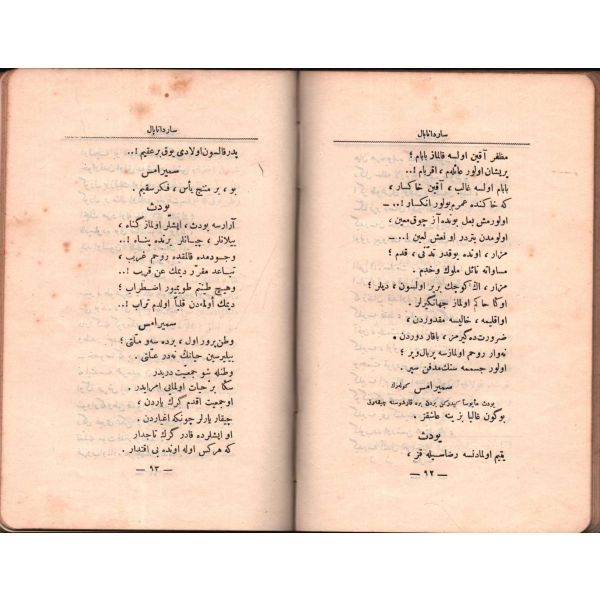 ساردانابال
مظفر آقین اولسه قالماز بابام ؛
پریشان اولور عائله‌م ، اقربام !..
بابام اولسه غالب ، آقین خاکسار ،
که خاکنده عمرم بولور انکسار ! ..ـ
اولورمش بعل بونده آز چوق معین ،
اولومدن بتردر او لعش لعین ! ..ـ
مزار ، اونده یوقدر ندنی ، قدم ؛
مساواته نائل ملوك وخدم .
مزار ، اك كوچك بر یر اولسون ، دیلر ؛
اوكا حاكم اولماز جهانگیرلر .
اواقلیمه ، خالیسه مقدوردن ،
ضرورت‌ده گیرمز ، باقار دوردن .
نه‌وار روحم اولمازسه بربال وپر ؛
اولور جسممه سنك مدفن سپر .
سمیرامس
یودت مأیوساً کیدرکن بردن بره قارشوسنه چیقه‌رق
بوگون غالبا بز ینه عاشقز .
یودت
یقیم اولمادنسه رضاسیله قز ،
— ٩٢ —
ساردانابال
پدر قالسون اولادی یوق بر عقیم !..
سمیرامس
بو ، بر منتج یأس ، فکر سقیم .
یودت
آرارسه یودت ، ایشلر اولماز گناه ،
بیلانلر ، چیانلر برنده پناه !..
وجودمده قالمقده روحم غریب ،
تباعد مقرر دیمك عن قریب !..
وهیچ طینتم طویمیور اضطراب ؛
دیمك أولمه‌دن قلباً اولدم تراب !..
سمیرامس
وطن پرور اول ، برده سه‌و ملتی ؛
بیلیرسین حیاتك نه‌در علتی .
وطنله شو جمعیت دربدر
سكا بر حیات اولمایی امرایدر .
اوجمعیت اقدم گرك یاردن ،
چیقار یارلر چونكه اغیاردن .
او ایشلرده قادر گرك تاجدار
كه هركس اوله اونده بی اقتدار .
— ٩٣ —